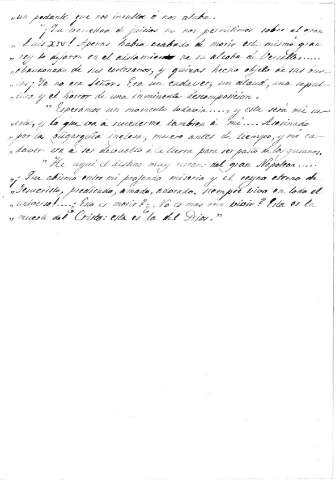 „un pedante que nos insulta o nos alaba.
"Tu crueldad de juicios no nos permitimos sobre el gran
„Luis XIV! Apenas había acabado de morir este mismo gran
„rey lo dejaron en el aislamiento en su alcoba de Versalles.....
„abandonado de sus cortesanos, y quizás hecho objeto de sus
„Ya no era Señor. Era un cadáver, un ataúd, una
„y el horror de una inminente descomposición.
"Esperamos un momento todavía....., y este será mi
„y lo que va a sucederme también a mí..... Asesinado
„por la oligarquía inglesa, muero antes de tiempo, y mi ca-
„dáver va a ser devuelto a la tierra para ser pasto de los gusanos.
"He aquí el destino muy cercano del gran Napoleón.....
„¡Qué abismo entre mi profunda miseria y el reino eterno de
„Jesucristo, predicado, amado, adorado, siempre vivo en todo el
„universo!....¿Esto es morir? ¿No es mas bien vivir? Esta es la
„muerte del Cristo: esta es la del Dios."